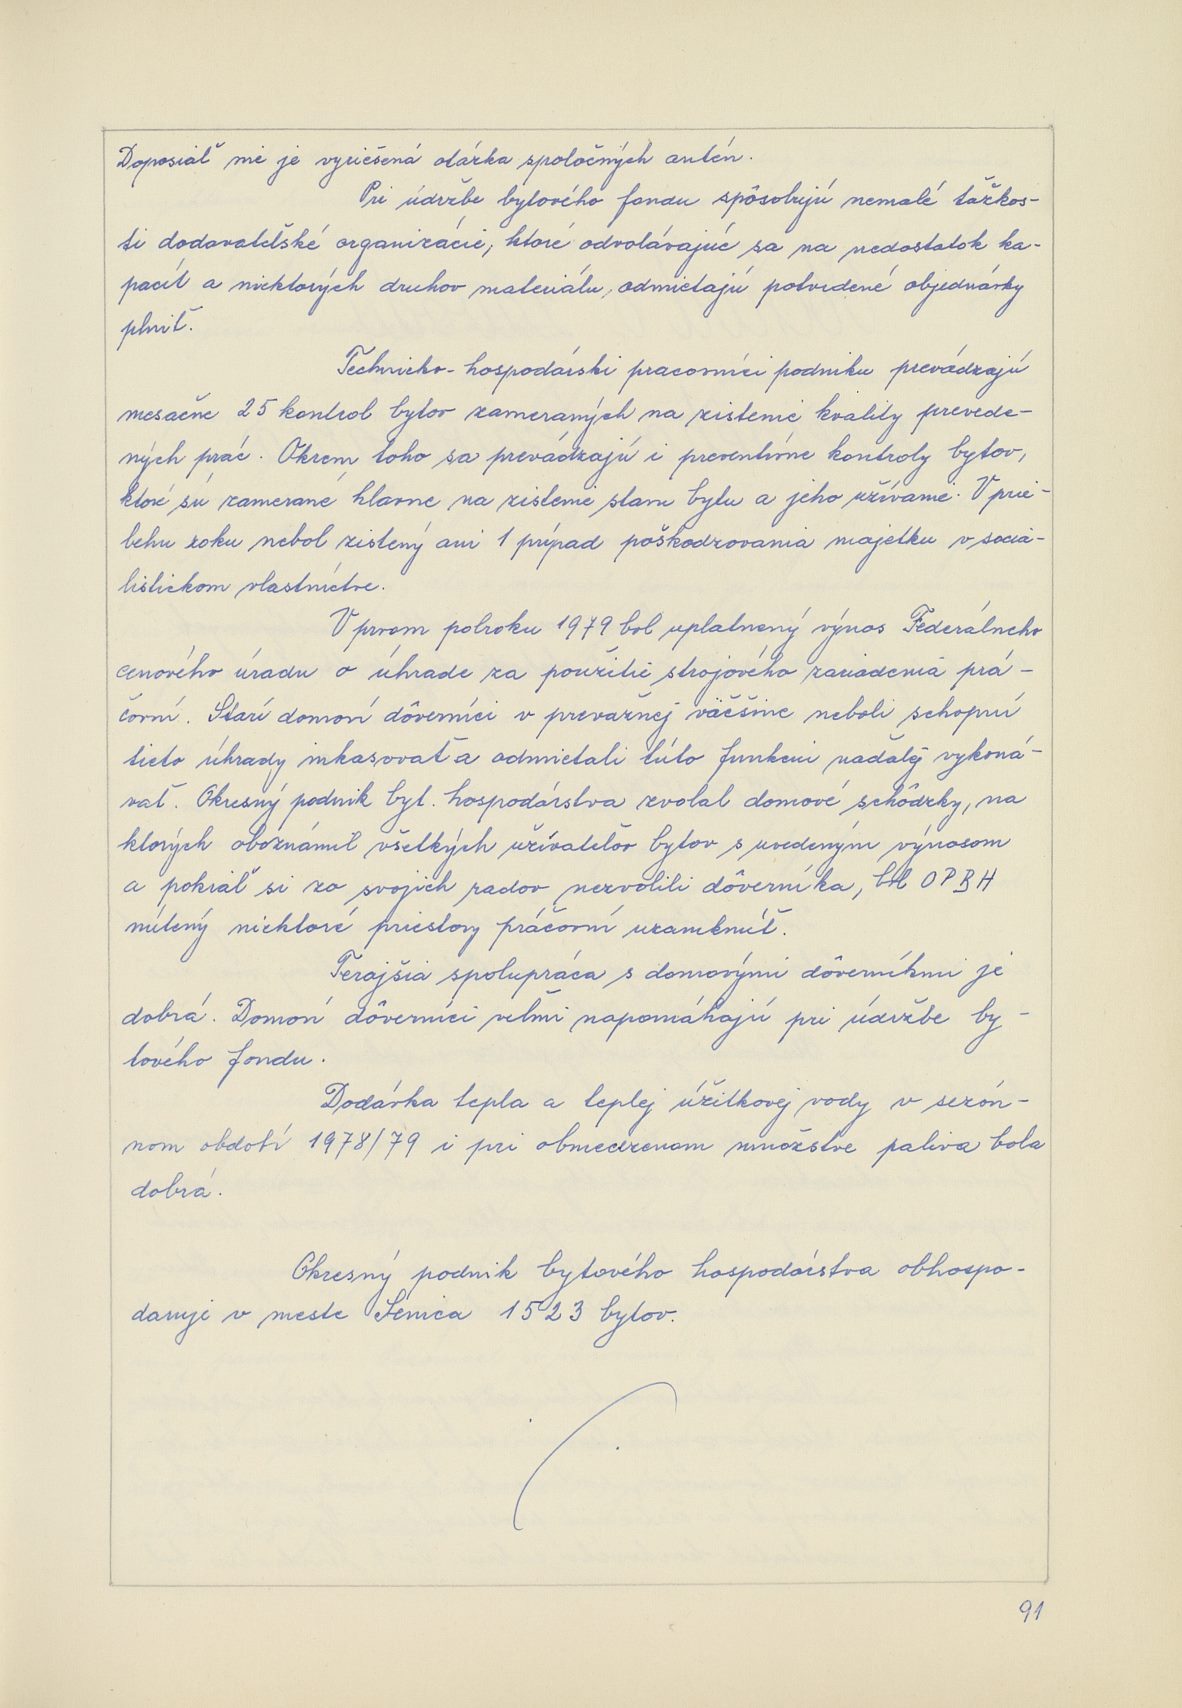 Doposiaľ nie je vyriešená otázka spoločných antén.
Pri údržbe bytového fondu spôsobujú nemalé ťažkos-
ti dodavateľské organizácie, ktoré odvolávajúc sa na nedostatok ka-
pacít a niektorých druhov materiálu, odmietajú potvrdené objednávky
plniť.
Technicko-hospodárski pracovníci podniku prevádzajú
mesačne 25 kontrol bytov zameraných na zistenie kvality prevede-
ných prác. Okrem toho sa prevádzajú i preventívne kontroly bytov,
ktoré sú zamerané hlavne na zistenie stavu bytu a jeho užívanie. V prie-
behu roku nebol zistený ani 1 prípad poškodzovania majetku v socia-
listickom vlastníctve.
V prvom polroku 1979 bol uplatnený výnos Federálneho
cenového úradu o úhrade za použitie strojového zariadenia prá-
čovní. Starí domoví dôverníci v prevažnej väčšine neboli schopní
tieto úhrady inkasovať a odmietali túto funkciu naďalej vykoná-
vať. Okresný podnik byt. hospodárstva zvolal domové schôdzky, na
ktorých oboznámil všetkých užívateľov bytov s uvedeným výnosom
a pokiaľ si zo svojich radov nezvolili dôverníka, bol OPBH
nútený niektoré priestory práčovní uzamknúť.
Terajšia spolupráca s domovými dôverníkmi je
dobrá. Domoví dôverníci veľmi napomáhajú pri údržbe by-
tového fondu.
Dodávka tepla a teplej úžitkovej vody v sezón-
nom období 1978/79 i pri obmedzenom množstve paliva bola
dobrá.
Okresný podnik bytového hospodárstva obhospo-
daruje v meste Senica 1523 bytov.
91